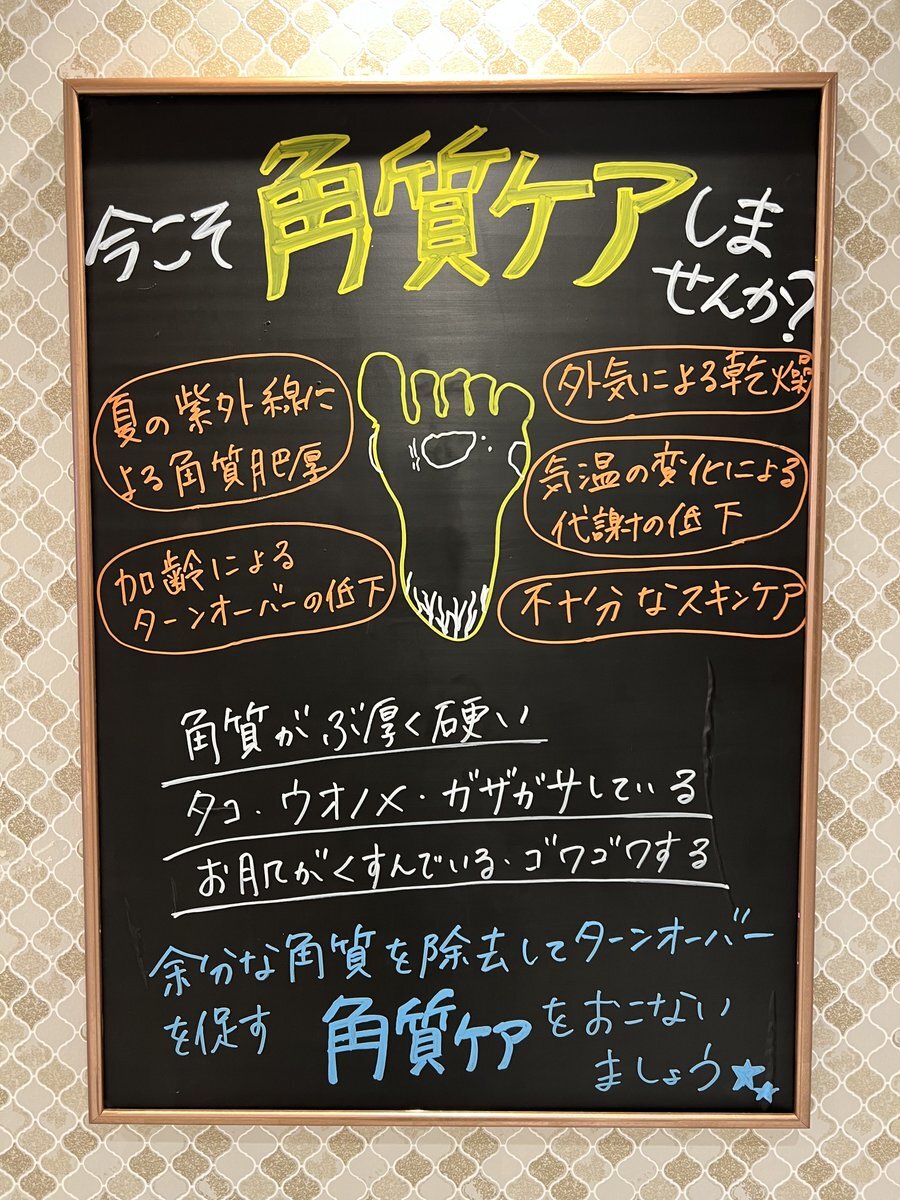 今こそ角質ケアしま
せんか?
夏の紫外線に
よる角質肥厚
加齢による
ターンオーバーの低下
外気による乾燥
気温の変化による
代謝の低下
不十分なスキンケア
角質がぶ厚く硬い
タコ・ウオノメ・ガザガサしている
お肌がくすんでいる・ゴワゴワする
余分な角質を除去してターンオーバー
を促す 角質ケアをおこない
ましょう